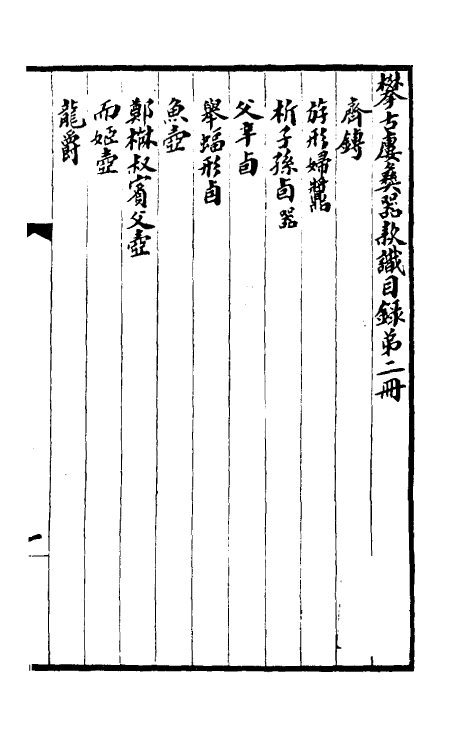 攀古廔彝器款識目録弟二冊
齊鎛
斿形婦䵼
析子孫卣器
父辛卣
舉蝠形卣
魚壺
鄭楙叔賓父壺
而姬壺
龍爵
一